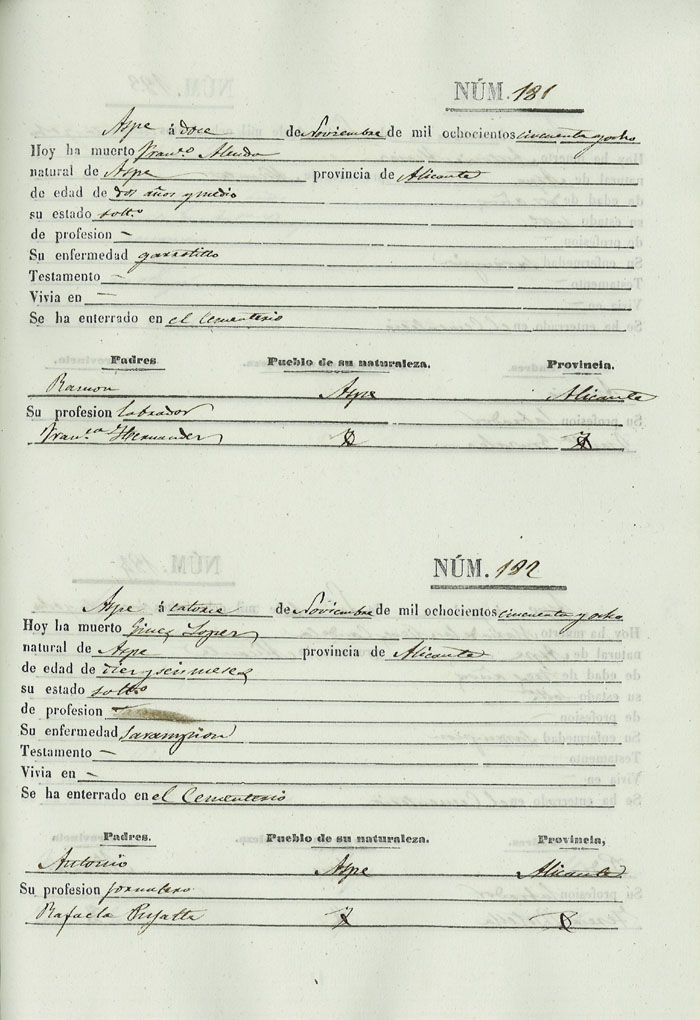 NÚM. 181
Aspe á doce de Noviembre de mil ochocientos cincuenta y ocho
Hoy ha muerto Fran.co Alenda
natural de Aspe provincia de Alicante
de edad de dos años y medio
su estado solt.o
de profesion –
Su enfermedad garrotillo
Testamento –
Vivia en –
Se ha enterrado en el Cementerio
Padres Pueblo de su naturaleza. Provincia.
Ramon Aspe Alicante
Su profesion labrador
Fran.ca Hernandez
NÚM. 182
Aspe á catorce de Noviembre de mil ochocientos cincuenta y ocho
Hoy ha muerto Gines Lopez
natural de Aspe provincia de Alicante
de edad de diez y seis meses
su estado solt.o
de profesion
Su enfermedad sarampion
Testamento –
Vivia en –
Se ha enterrado en el Cementerio
Padres. Pueblo de su naturaleza. Provincia,
Antonio Aspe Alicante
Su profesion jornalero
Rafaela Pujalte